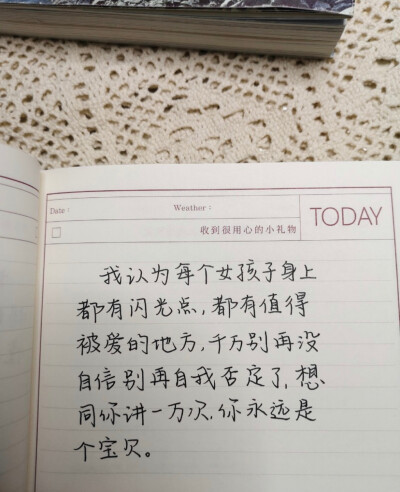 Date：
Weather：
TODAY
收到很用心的小礼物
我认为每个女孩子身上
都有闪光点，都有值得
被爱的地方，千万别再没
自信别再自我否定了，想
同你讲一万次，你永远是
个宝贝。